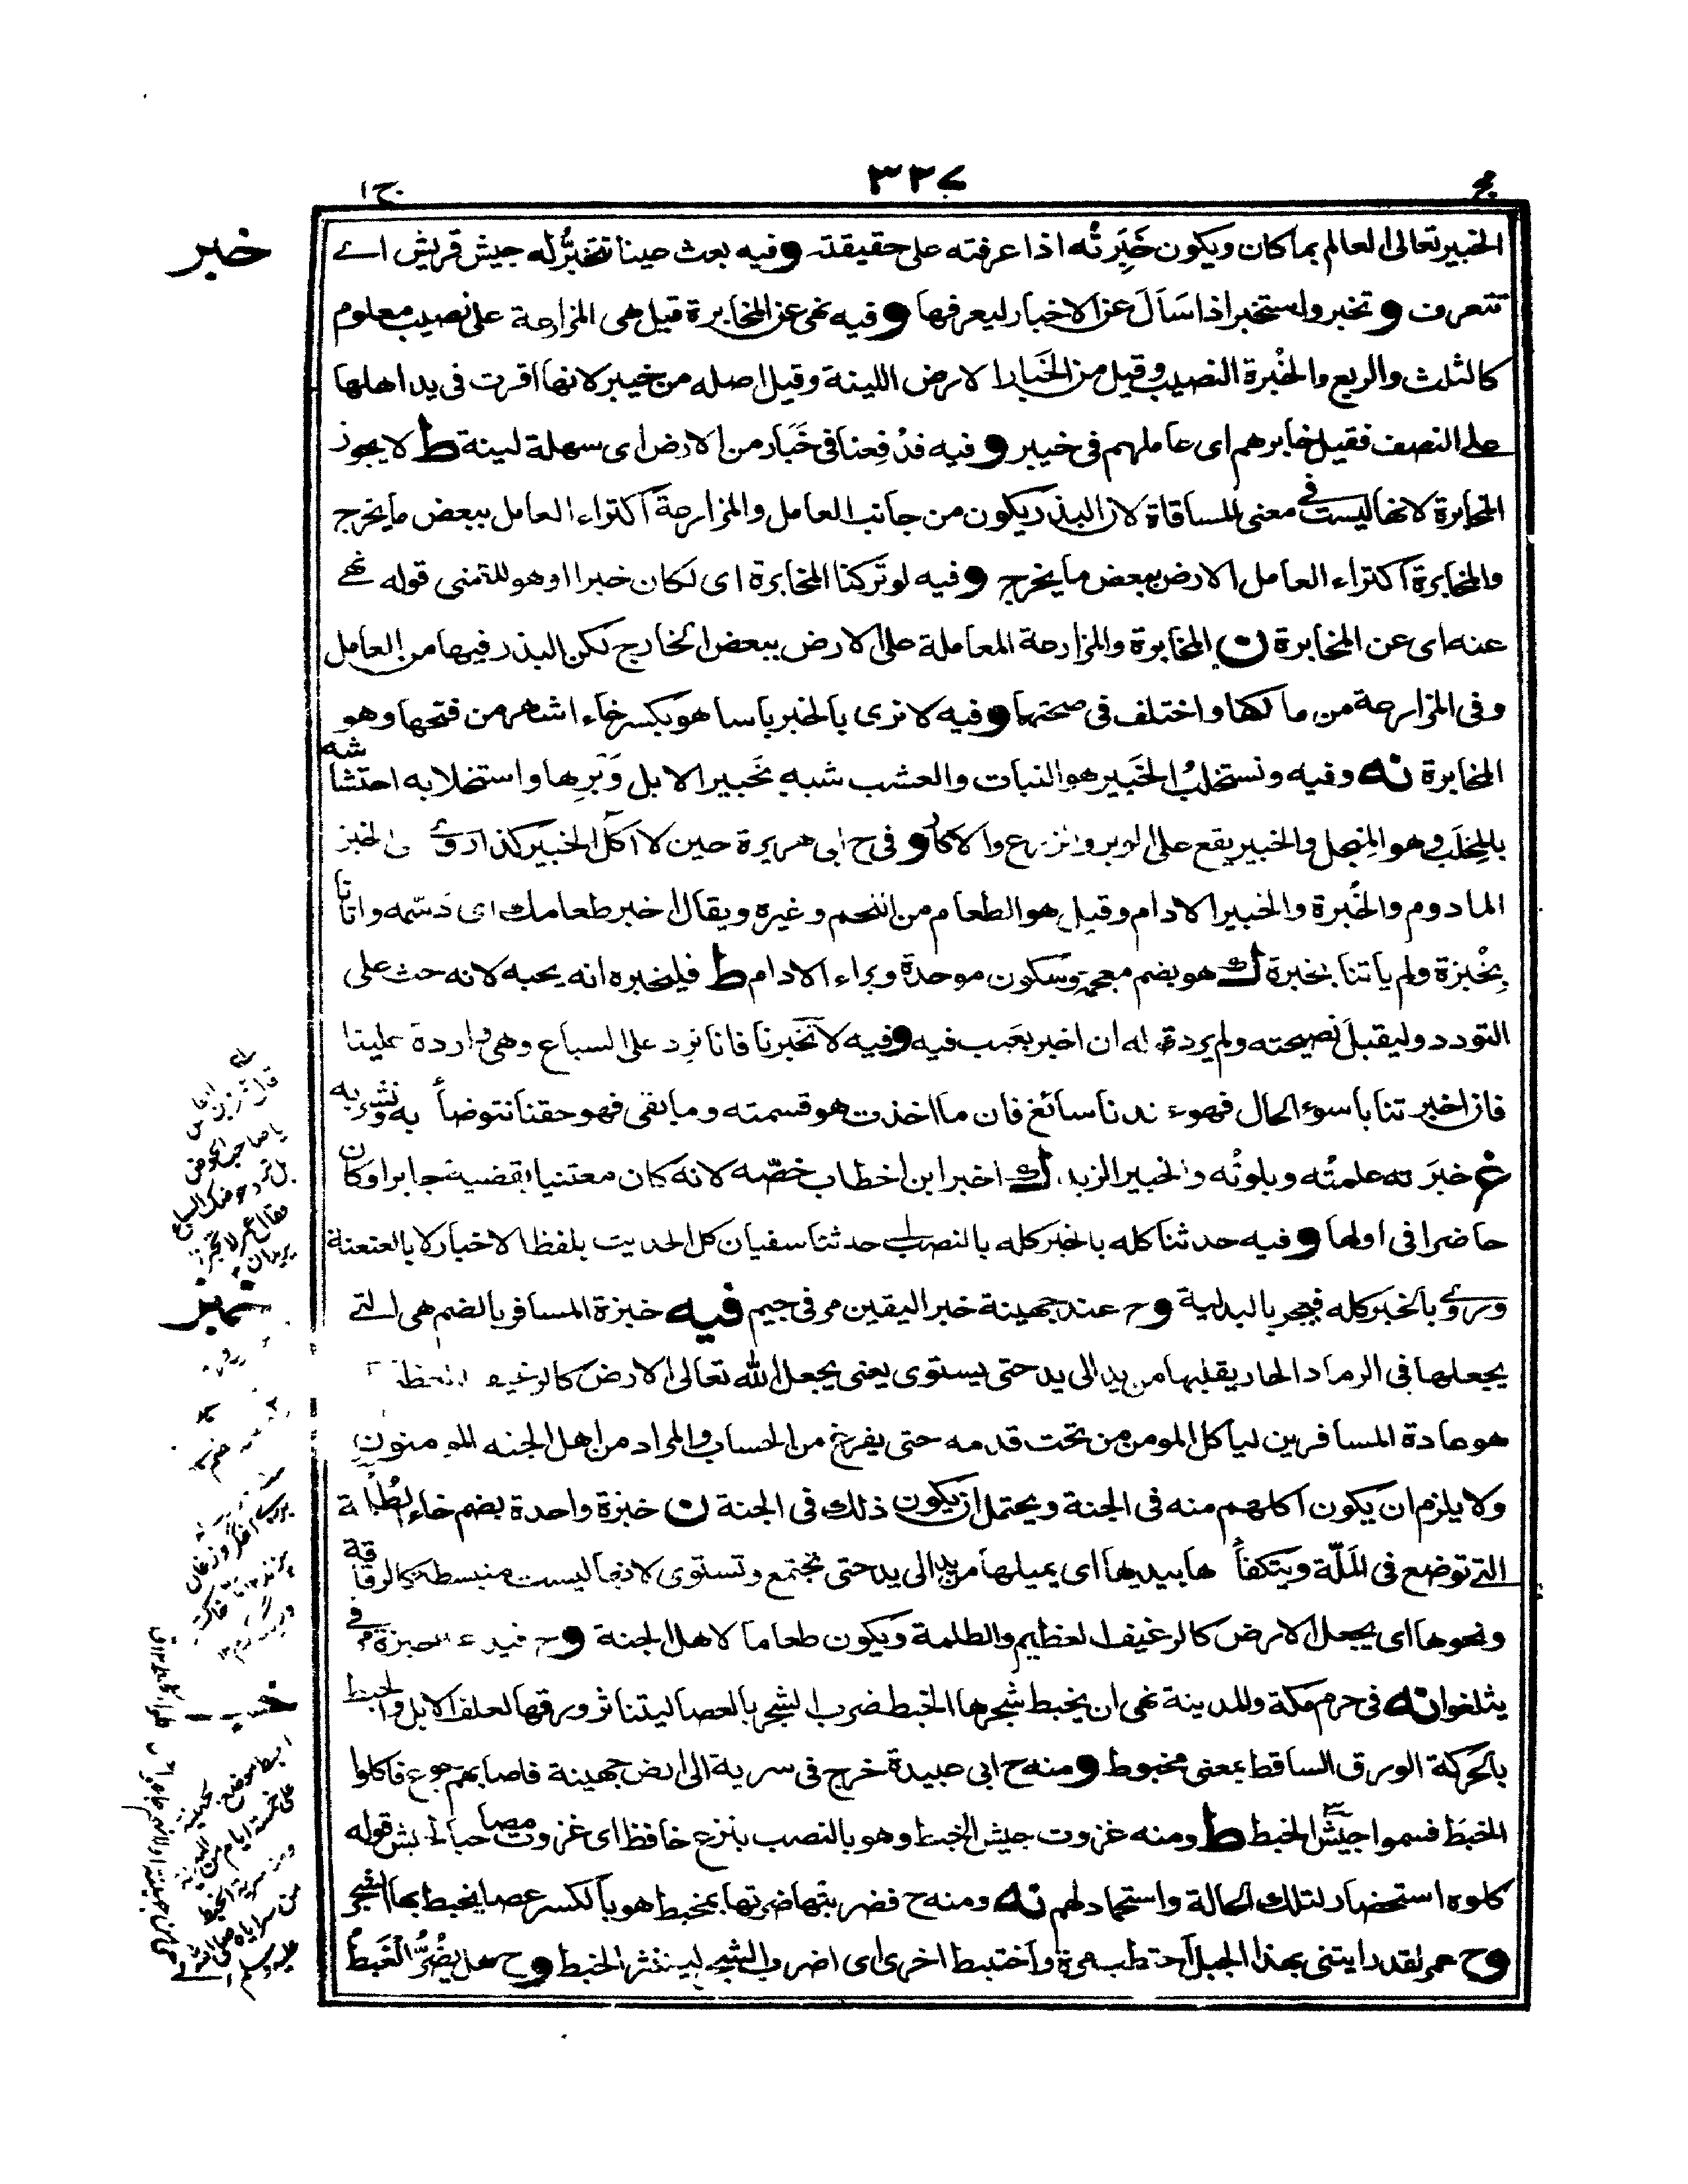 مج ٣٣٧ ج١
خبر
الخبير تعالى العالم بما كان ويكون خَبَِرتُه اذا عرفته على حقيقته وفيه بعث عينا تتخبَّرُ له جيش قريش اے
تتعرف و تخبر واستخبر اذا سَاَلَ عن الاخبار ليعرفها وفيه نهى عن المخابرة قيل هى المزارعة على نصيب معلوم
كالثلث والربع والخُبْرة النصيب وقيل من الخَبار الارض اللينة وقيل اصله من خيبر لانها اقرت فى يد اهلها
على النصف فقيل خابرهم اى عاملهم فى خيبر وفيه فدُفِعنا فى خَبَار من الارض اى سهلة لينة ط لا يجوز
المخابرة لانها ليست فى معنى المساقاة لان البذر يكون من جانب العامل والمزارعة اكتراء العامل ببعض ما يخرج
والمخابرة اكتراء العامل الارض ببعض ما يخرج وفيه لو تركنا المخابرة اى لكان خيرا او هو للتمنى قوله نهى
عنه اى عن المخابرة ن المخابرة والمزارعة المعاملة على الارض ببعض الخارج لكن البذر فيها من العامل
وفى المزارعة من مالكها واختلف فى صحتهما وفيه لا نرى بالخبر باسا هو بكسر خاء اشهر من فتحها وهو
المخابرة نه وفيه ونستخلبُ الخَبير هو النبات والعشب شبه بخَبير الابل وَبَرِها واستخلابه احتشاشه
بالمِخلَب وهو المِنجل والخبير يقع على الوبر والزرع والاكار وفى ح ابى هريرة حين لا اكل الخبير كذا روى اى الخبز
المادوم والخُبرة والخبير الادام وقيل هو الطعام من اللحم وغيره ويقال اخبر طعامك اى دَسّمه واتانا
بِخُبْزة ولم ياتنا بخبرة ك هو بضم معجمة وسكون موحدة وبراء الادام ط فليخبره انه يحبه لانه حث على
التودد وليقبلَ نصيحته ولم يرده له ان اخبر بعَيب فيه وفيه لا تخبرنا فانا نرد على السباع وهى واردة علينا
فان اخبرتنا باسوء الحال فهو عندنا سائغ فان ما اخذت هو قسمته وما بقى فهو حقنا نتوضأ به ونشربه
غ خبرَته علمتُه وبلوتُه والخبير الزبد ك اخبر ابن اخطاب خصّه لانه كان معتنيا بقضية جابر او كان
حاضرا فى اولها وفيه حدثنا كله بالخبر كله بالنصب اى حدثنا سفيان كل الحديث بلفظ الاخبار لا بالعنعنة
وروى بالخبر كله فيجر بالبدلية وح عند جهينة خبر اليقين مر فى جيم فيه خبزة المسافر بالضم هى التے
يجعلها فى الرماد الحار يقلبها من يد الى يد حتى يستوى يعنى يجعل الله تعالى الارض كالرغيف
هو عادة المسافرين لياكل المومن من تحت قدمه حتى يفرغ من الحساب والمراد من اهل الجنه المومنون
ولا يلزم ان يكون اكلهم منه فى الجنة ويحتمل ان يكون ذلك فى الجنة ن خبزة واحدة بضم خاء الطُلمة
التے توضع فى المَلّة ويتكفأ ها بيديها اى يميلها من يد الى يد حتى تجتمع وتستوى لانها ليست منبسطة كالرقاقة
ونحوها اى يجعل الارض كالرغيف العظيم والطلمة ويكون طعاما لاهل الجنة وح الخبزة مر فى
يثلغوا نه فى حرم مكة والمدينة نهى ان يخبط شجرها الخبط ضرب الشجر بالعصا ليتناثر ورقها لعلف الابل والخبط
بالحركة الورق الساقط بمعنى مخبوط ومنه ح ابى عبيدة خرج فى سرية الى ارض جهينة فاصابهم جوع فاكلوا
الخبَط فسموا جيشَ الخبط ط ومنه غزوت جيش الخبط وهو بالنصب بنزع خافظ اى غزوت مصاحبا لجيش قوله
كلوه استحضار لتلك الحالة واستحماد لهم نه ومنه ح فضربتها ضرتها بمخبط هو بالكسر عصا يخبط بها الشجر
وح عمر لقد رايتنى بهذا الجبل احتطب مرة واختبط اخرى اى اضرب الشجر لينتثر الخبط وح هل يضُرُّ الغَبطُ
يا صاحب الحوض
هل ترد حوضك السباع
فقال عمر لا تخبرنا
خبز
خبط